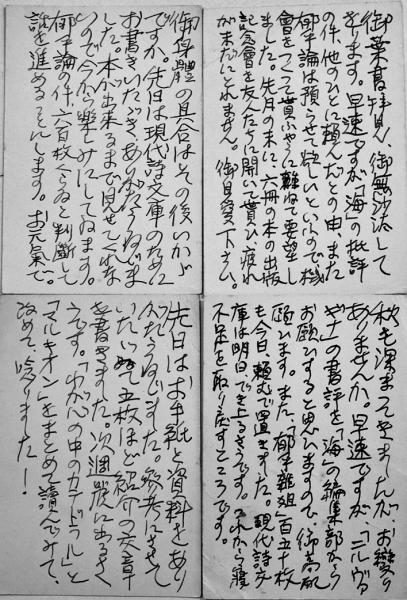 御葉書拝見、御無沙汰して
をります。早速ですが「海」の批評
の件、他のひとに頼んだとの由、また
郁乎論は預らせて欲しいといふので機
會をつくって貰ふやうに重ねて要望し
ました。先月の末に、六冊の本の出版
記念會を友人たちに開いて貰ひ、疲れ
が未だにとれません。御自愛下さい。
御身體の具合はその後いかが
ですか。先日は現代詩文庫のために
お書きいただき、ありがたうございま
した。本が出来るまで見せてくれな
いので今から樂しみにしてゐます。
郁乎論の件、六百枚くらゐと判断して
話を進めることにします。お元氣で。
秋も深まってきましたが、お變り
ありませんか。早速ですが、「ニルヴァ
ヤナ」の書評を「海」の編集部から
お願ひすると思ひますので、御高配
願ひます。また「郁乎雜俎」百五十枚
も今日、頼んで置きました。現代詩文
庫は明日でき上るさうです。これから寢
不足を取り戻すところです。
先日はお手紙と資料をあり
がたうございました。參考にさせて
いただいて五枚ほど紹介の文章
を書きました。次週
うです。「わが心の中のカテドラル」と
「マルキオン」をまとめて讀んでみて、
改めて唸りました!